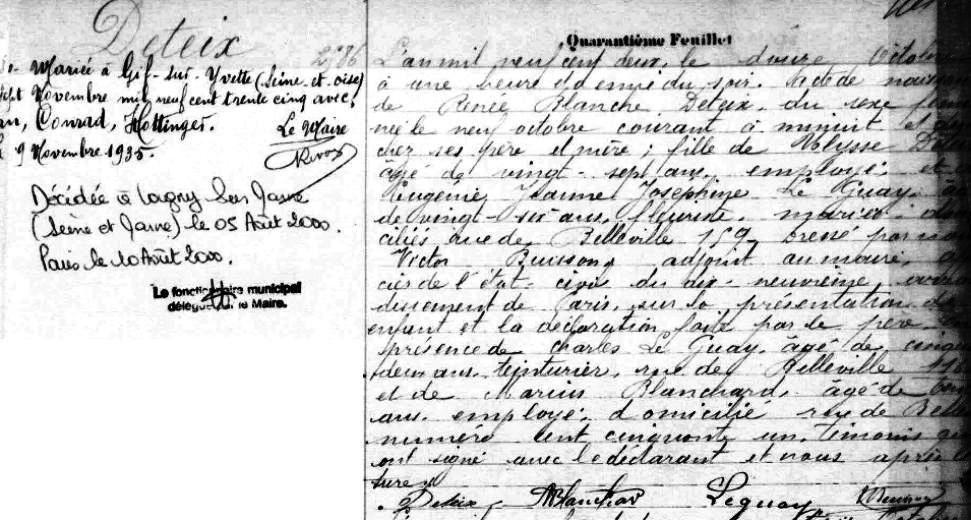 Deteix
2986
Mariée à Gif-sur-Yvette (Seine-et-oise)
sept Novembre mil neuf cent trente cinq avec
Conrad, Hottinger.
Le Maire
9 Novembre 1935.
Décidée à Lagny Sur Marne
(Seine et Marne) le 05 Août 2000.
Paris le 10 Août 2000.
Le fonctionnaire municipal
délégué le Maire.
Quarantième Feuillet
L'an mil neuf cent deux, le douze Octobre
à une heure et demie du soir. Acte de
de Renée Blanche Deteix, du sexe
née le neuf octobre courant à minuit et
chez ses père et mère; fille de Ulysse
âgé de vingt-sept ans, employé, et
Eugénie Jeanne Joséphine Le Guay,
de vingt-six ans, fleuriste, mariés,
ciliés rue de Belleville 159, dressé par
Victor Buisson, adjoint au maire,
cier de l'état-civil du dix-neuvième
dissement de Paris, sur la présentation de
enfant et la déclaration faite par le père
présence de Charles Le Guay, âgé de
deux ans, teinturier, rue de Belleville
et de Marius Blanchard, âgé de
ans, employé, domicilié rue de
numéro cent cinquante un, témoins qui
ont signé avec le déclarant et nous après
ture
Deteix Blanchard Leguay